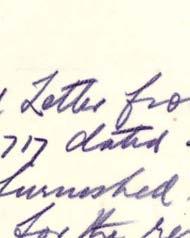 Letter fro
717 dated
furnished
for the re